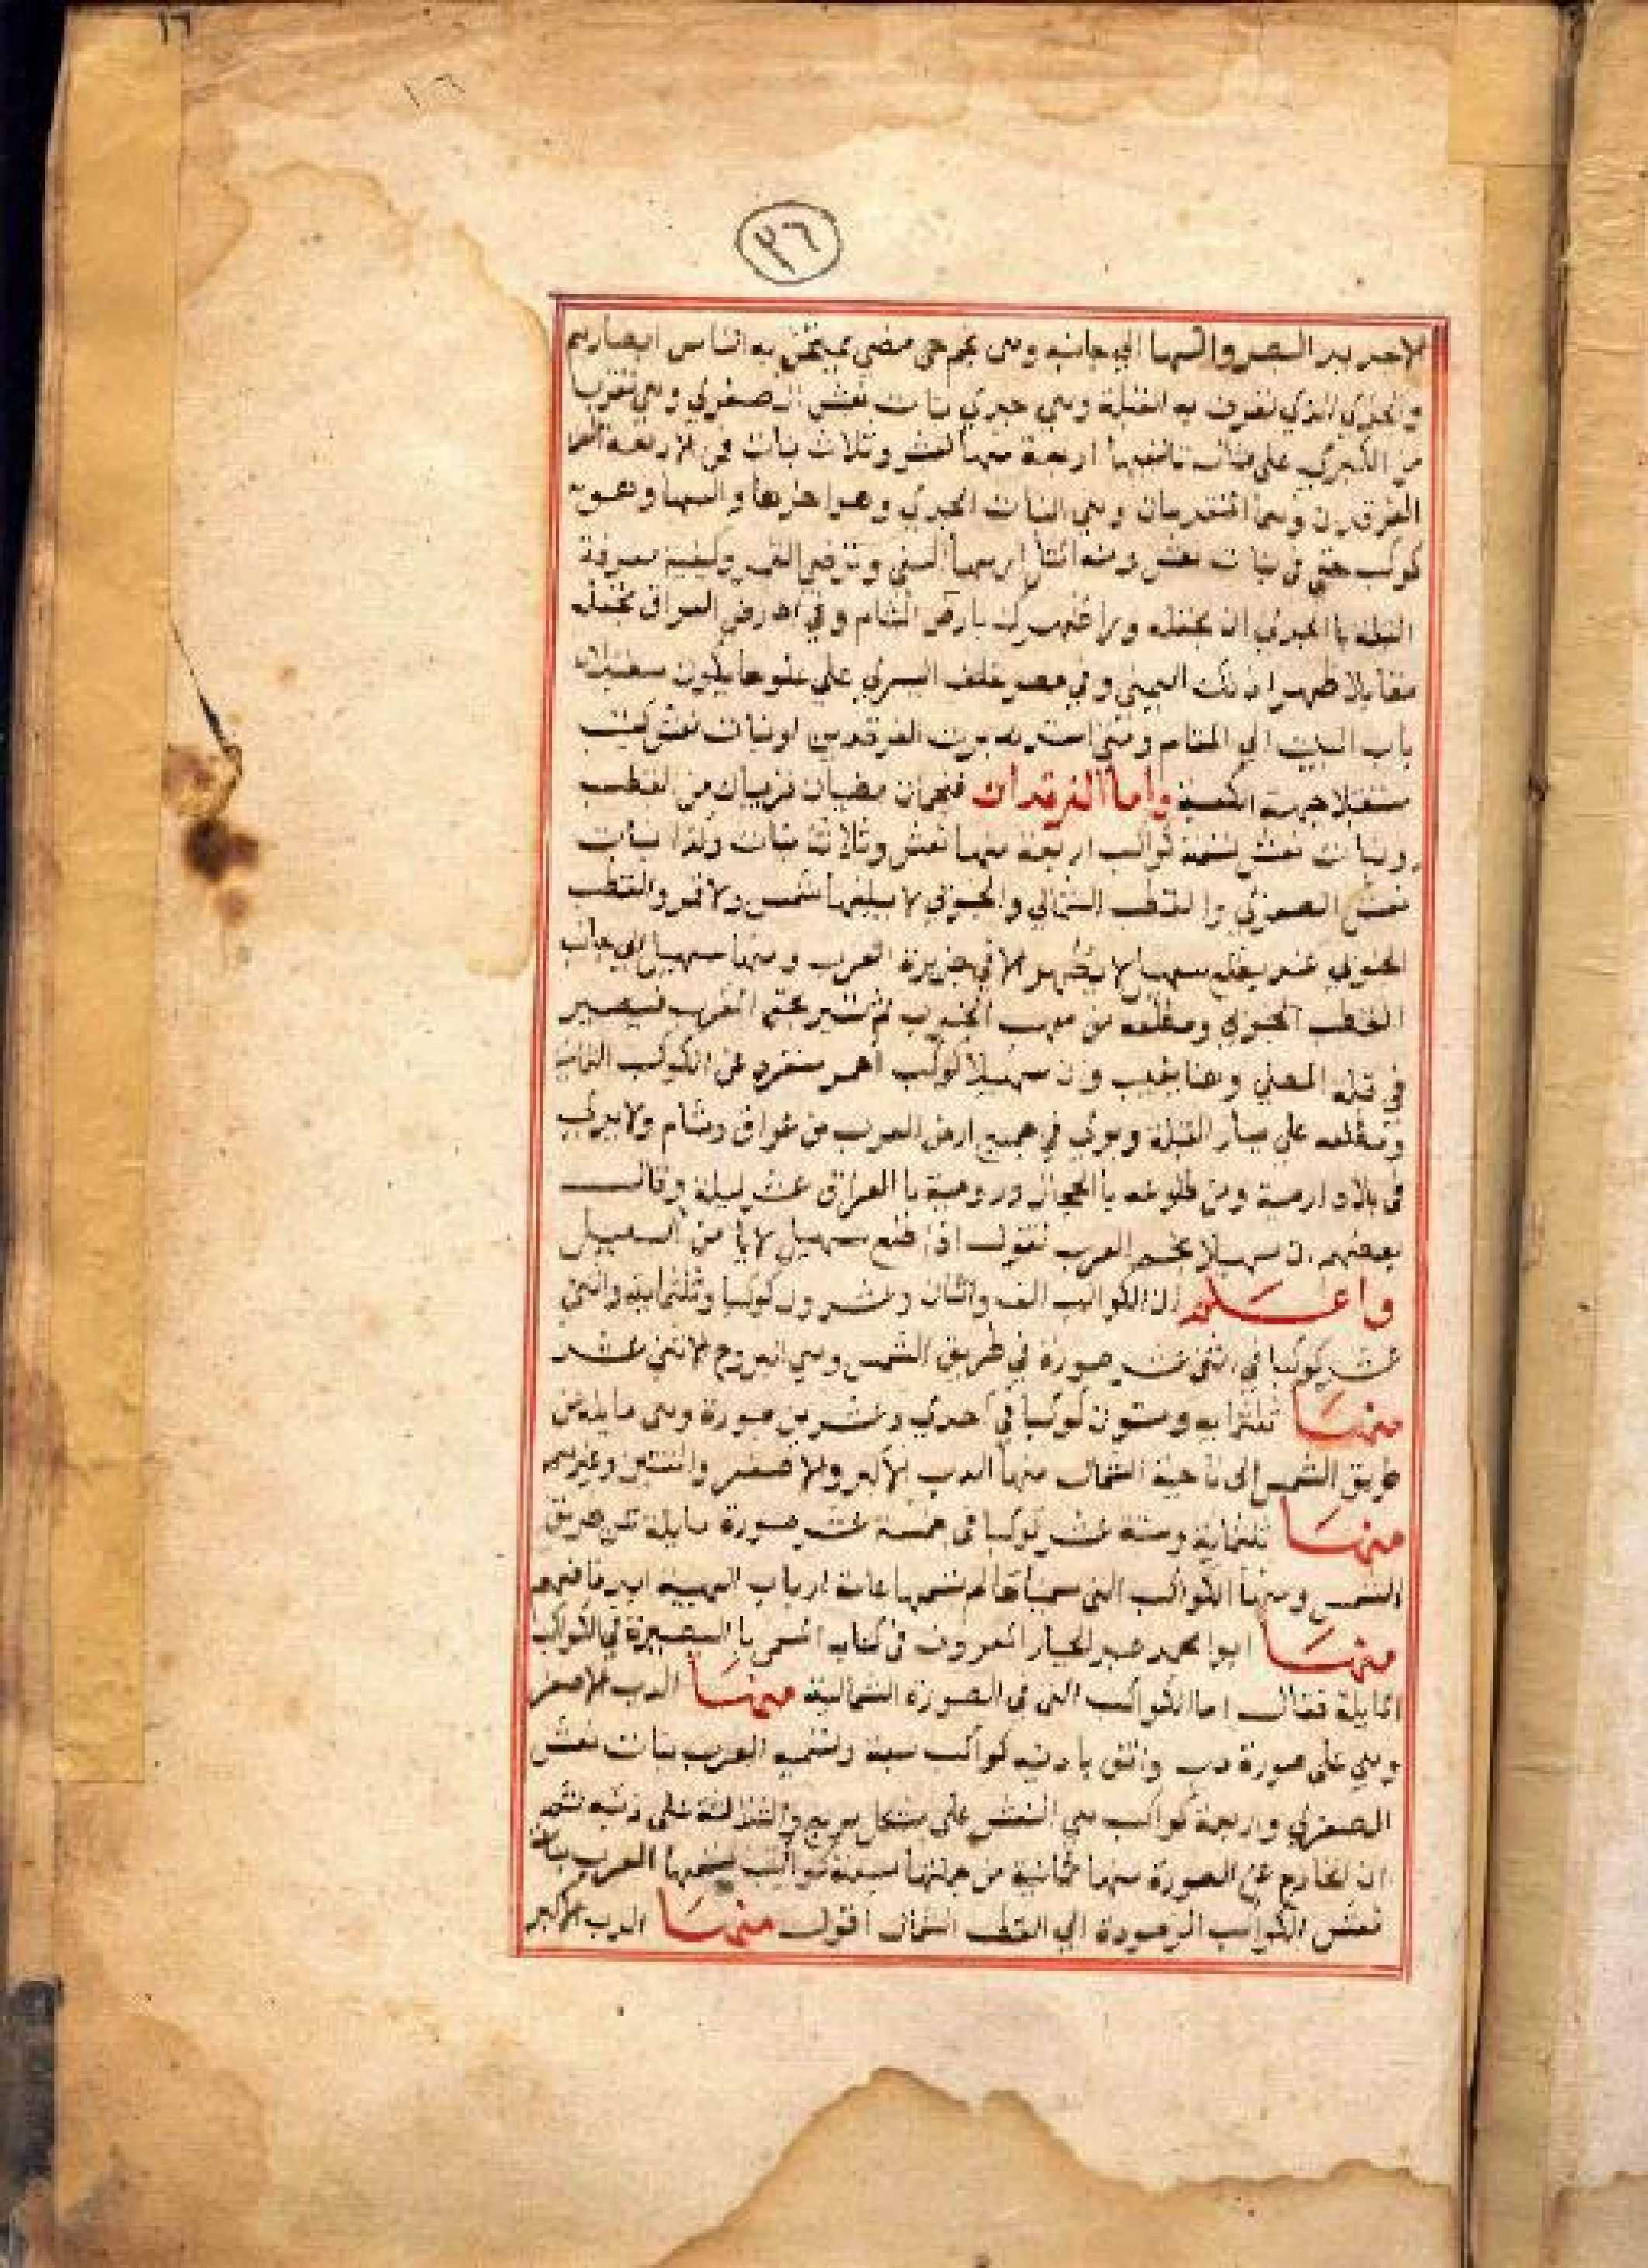 ١٦
١٦
٢٦
لاحديد البصر والسها الي جانبه وهى نجم خفي يمتحن به الناس ابصارهم
والجدي الذي تعرف به القبلة وهي جدي بنات نعش الصغري وهي تقرب
من الكبري على اربعة منها نعش وثلاث بنات فمن الاربعة
الفرقدان وهما المتقدمان ومن البنات الجدي وهو اخرها والسها وهو
كوكب خفي في بنات نعش ومنه المثل اريها السهى وتريني القمر وكيفية معرفة
القبلة با الجدي ان تجعله وراء ظهرك بارض الشام وفي ارض العراق تجعله
مقابلا ظهر اذنك اليمنى وفي مصر خلف اليسري على يكون مستقبلا
باب البيت الي المقام ومتى استدبرت الفرقدين او بنات نعش كنت
مستقبلا جهة الكعبة واما الفرقدان فنجمان مضيان قريبان من القطب
وبنات نعش سبعة كواكب اربعة منها نعش وثلاثة بنات وكذا بنات
نعش الصغري والقطب الشمالي والجنوبي لا يبلغها شمس ولا قمر والقطب
الجنوبي عند سهيل لا يظهر الا في جزيرة العرب ومنها سهيل الي جانب
القطب الجنوبي ومطلعه من مهب الجنوب ثم تسير المغرب فيصير
في قبلة المصلي وهنا يغيب وان سهيلا كوكب احمر منفرد عن الكوكب
ومطلعه على يسار القبلة ويري في جميع ارض العرب من عراق وشام ولا يري
في بلاد ارمنية وبين طلوعه با الحجاز ورويته با العراق عشر ليلة وقال
بعضهم ان سهيلا نجم العرب تقول اذا طلع سهيل لا من السبيل
واعلم ان الكواكب الف واثنان وعشرون كوكبا وثلثماية واثني
عشر كوكبا في اثني عشر صورة في طريق الشمس وهي البروج الاثني عشر
منها ثلثماية وستون كوكبا في احدي وعشرين صورة وهى مايلة عن
طريق الشمس الى ناحية الشمال منها الدب الاكبر والاصغر والتنين وغيرهم
منها ثلثماية وستة عشر كوكبا في خمسة عشر صورة مايلة عن طريق
الشمس ومنها الكواكب التي ارباب
منها ابوا محمد عبد الجبار المعروف في كتاب با التبصرة في الكواكب
المايلة فقال اما الكواكب التي في الصورة الشمالية منها الدب الاصغر
وهي على صورة دب كواكب سبعة وتسميه العرب بنات نعش
الصغري واربعة كواكب هي النعش على شكل مربع والثلاثة على ذنبه
ان الخارج عن الصورة منها ثمانية من جملتها سبعة كواكب تسميها العرب بنات
نعش الكواكب المرصودة الي القطب الشمال اقول منها الدب الاكبر